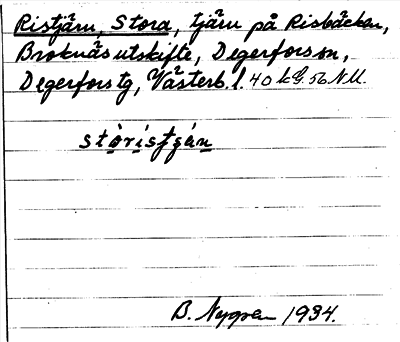 Ristjärn, Stora, tjärn på Risbäcken,
Broknäs utskifte, Degerfors sn,
Degerfors tg, Västerb. l. 40 k G. 56 N.U.
stòristjàn
B. Nygren 1934.